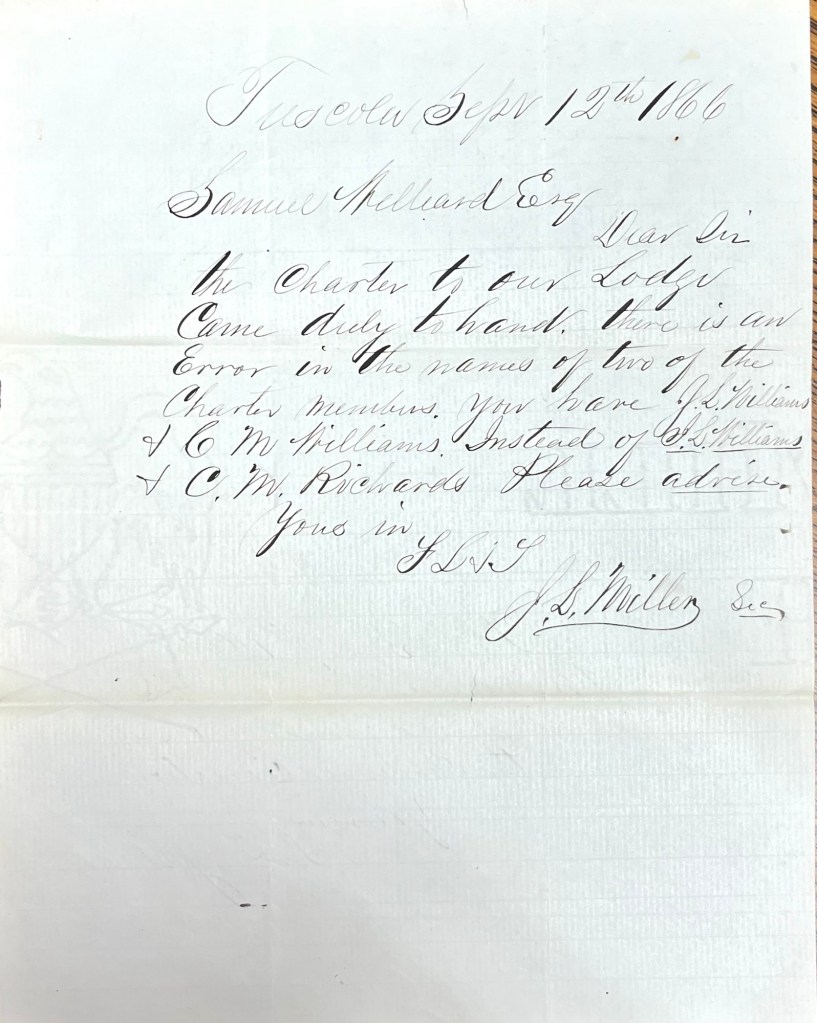 Tuscola Sept 12th 1866
Samuel Williard Esq
Dear Sir
the Charter to our Lodge
Came duly to hand. there is an
Error in the names of two of the
Charter members. you have J. L. Williams
& C M Williams. Instead of I. L. Williams
& C. M. Richards Please advise.
Yous in
F L & T
J. L. Miller Sec